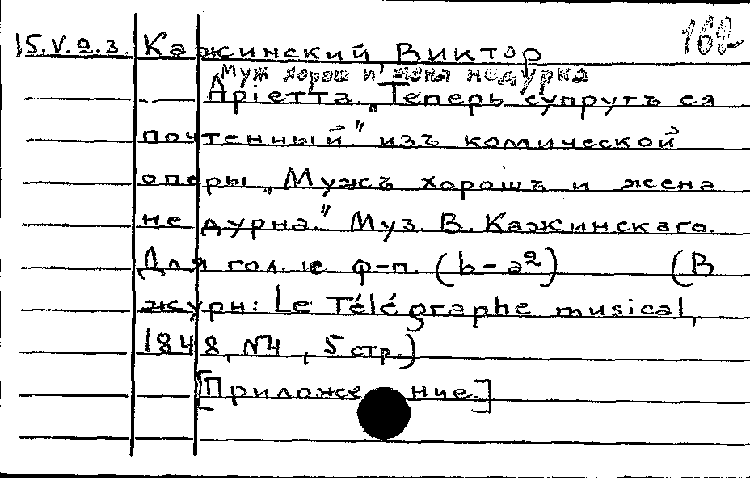 15.V.a.3. Кажинский, Виктор 162
Муж хорош и жена недурна
Аріетта „Теперь супругъ ея
почтенный" изъ комической
оперы „Мужъ хорошъ и жена
не дурна." Муз. В. Кажинскаго.
Для гол. с ф-п. (b-a²) (В
журн: Le Télégraphe musical,
1848, №4, 5 стр.)
[Приложение.]